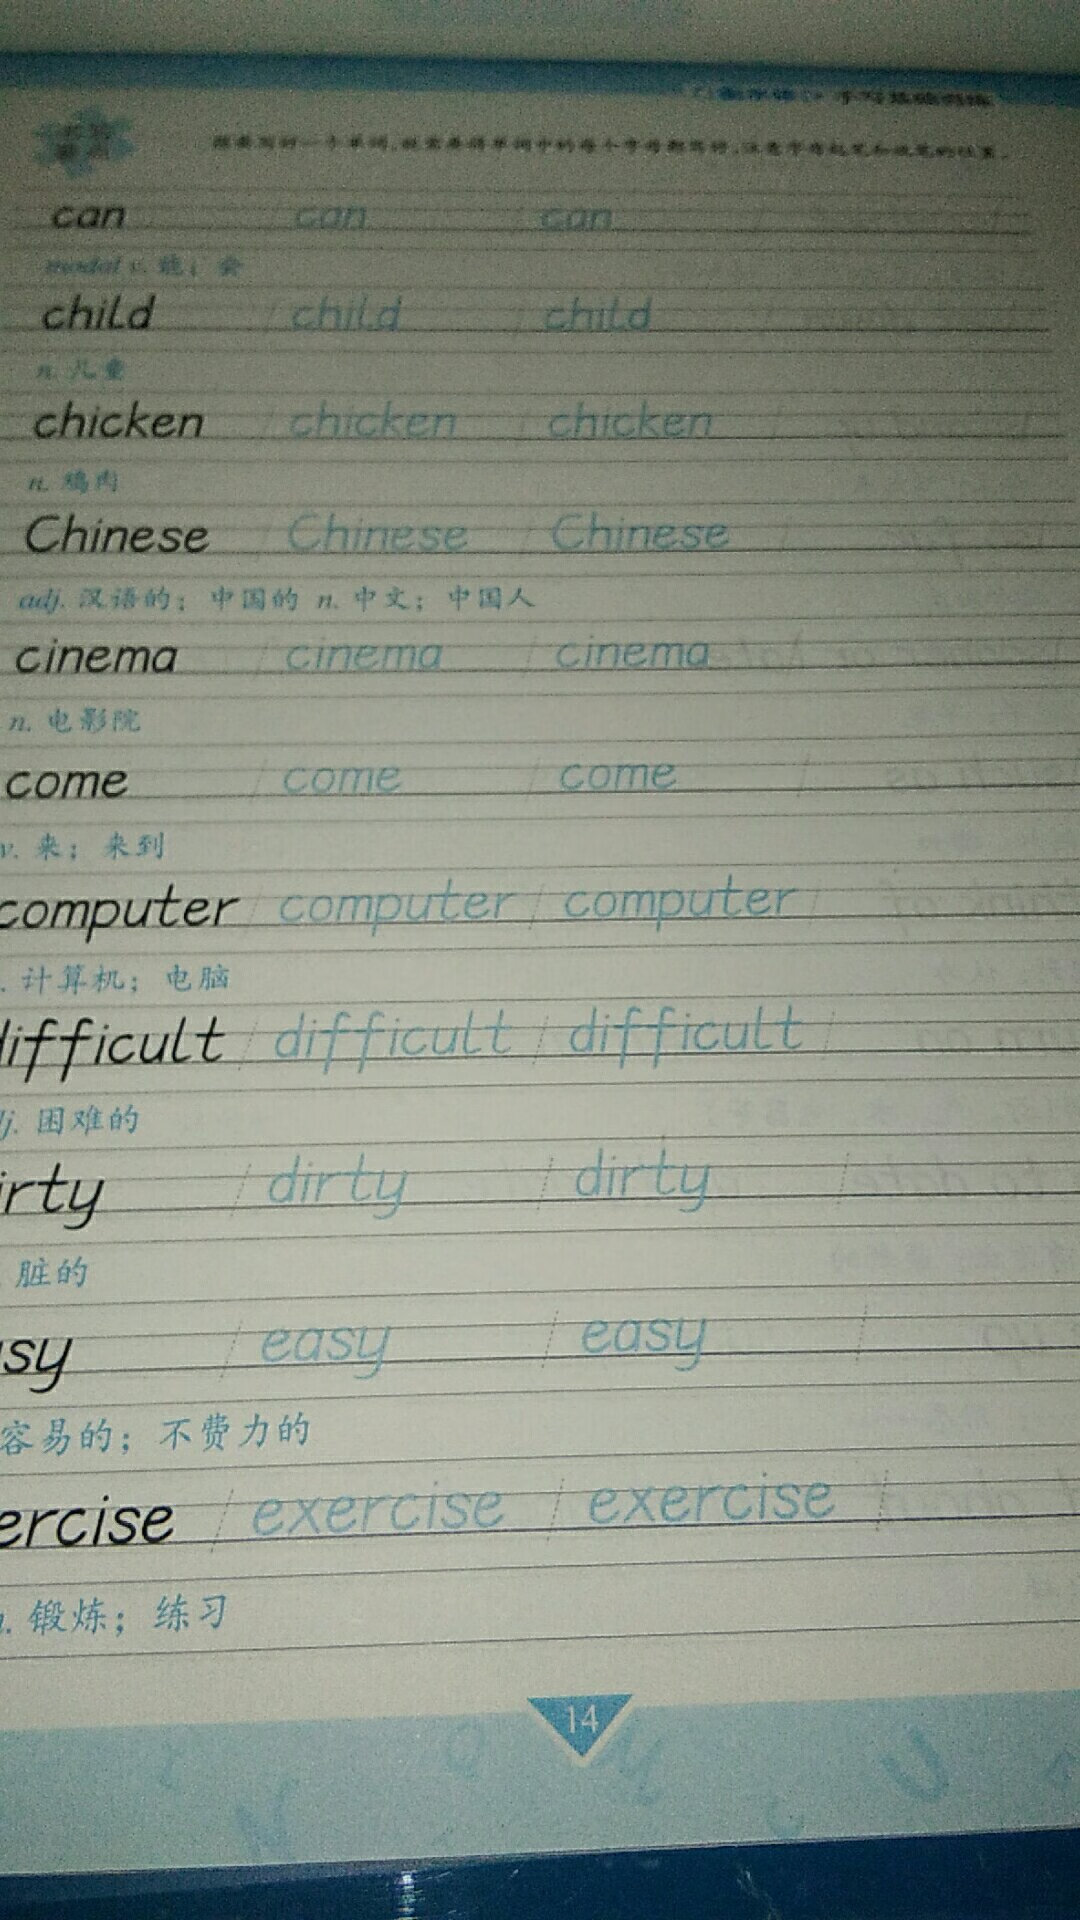 想要写好一个单词,就需要将单词中的每个字母都写好,注意字母起笔和收笔的位置。
can can can
modal v. 能；会
child child child
n. 儿童
chicken chicken chicken
n. 鸡肉
Chinese Chinese Chinese
adj. 汉语的；中国的 n. 中文；中国人
cinema cinema cinema
n. 电影院
come come come
v. 来；来到
computer computer computer
. 计算机；电脑
difficult difficult difficult
dj. 困难的
irty dirty dirty
. 脏的
sy easy easy
容易的；不费力的
ercise exercise exercise
n. 锻炼；练习
14